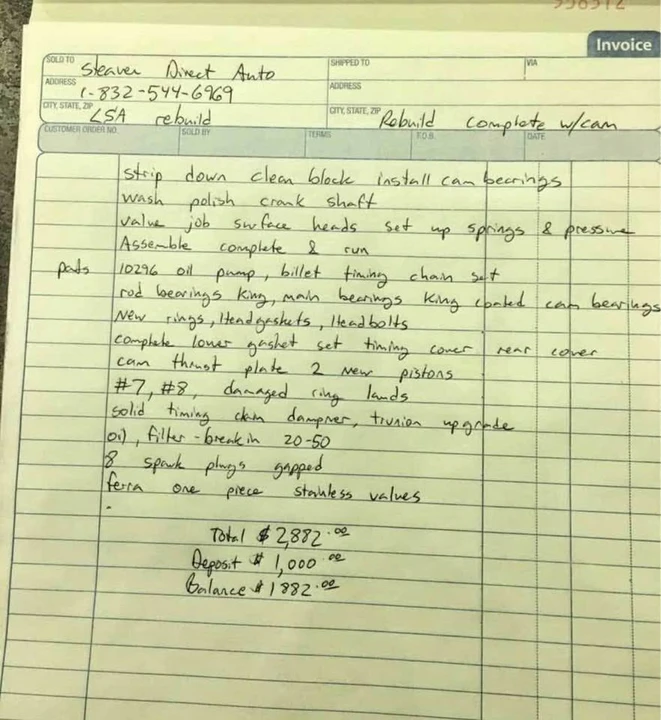 Invoice
SOLD TO Steaver Direct Auto SHIPPED TO VIA
ADDRESS 1-832-544-6969 ADDRESS
CITY, STATE, ZIP LSA rebuild CITY, STATE, ZIP Rebuild complete w/cam
CUSTOMER ORDER NO. SOLD BY TERMS F.O.B. DATE
strip down clean block install cam bearings
wash polish crank shaft
value job surface heads set up springs & pressure
Assemble complete & run
pats 10296 oil pump, billet timing chain set
rod bearings King, main bearings King coated cam bearings
New rings, Head gaskets, Head bolts
complete lower gasket set timing cover rear cover
cam thrust plate 2 new pistons
#7, #8, damaged ring lands
solid timing chain dampner, trunion upgrade
oil, filter - break in 20-50
8 spark plugs gapped
ferra one piece stainless values
Total $2,882.00
Deposit $1,000.00
Balance $1882.00